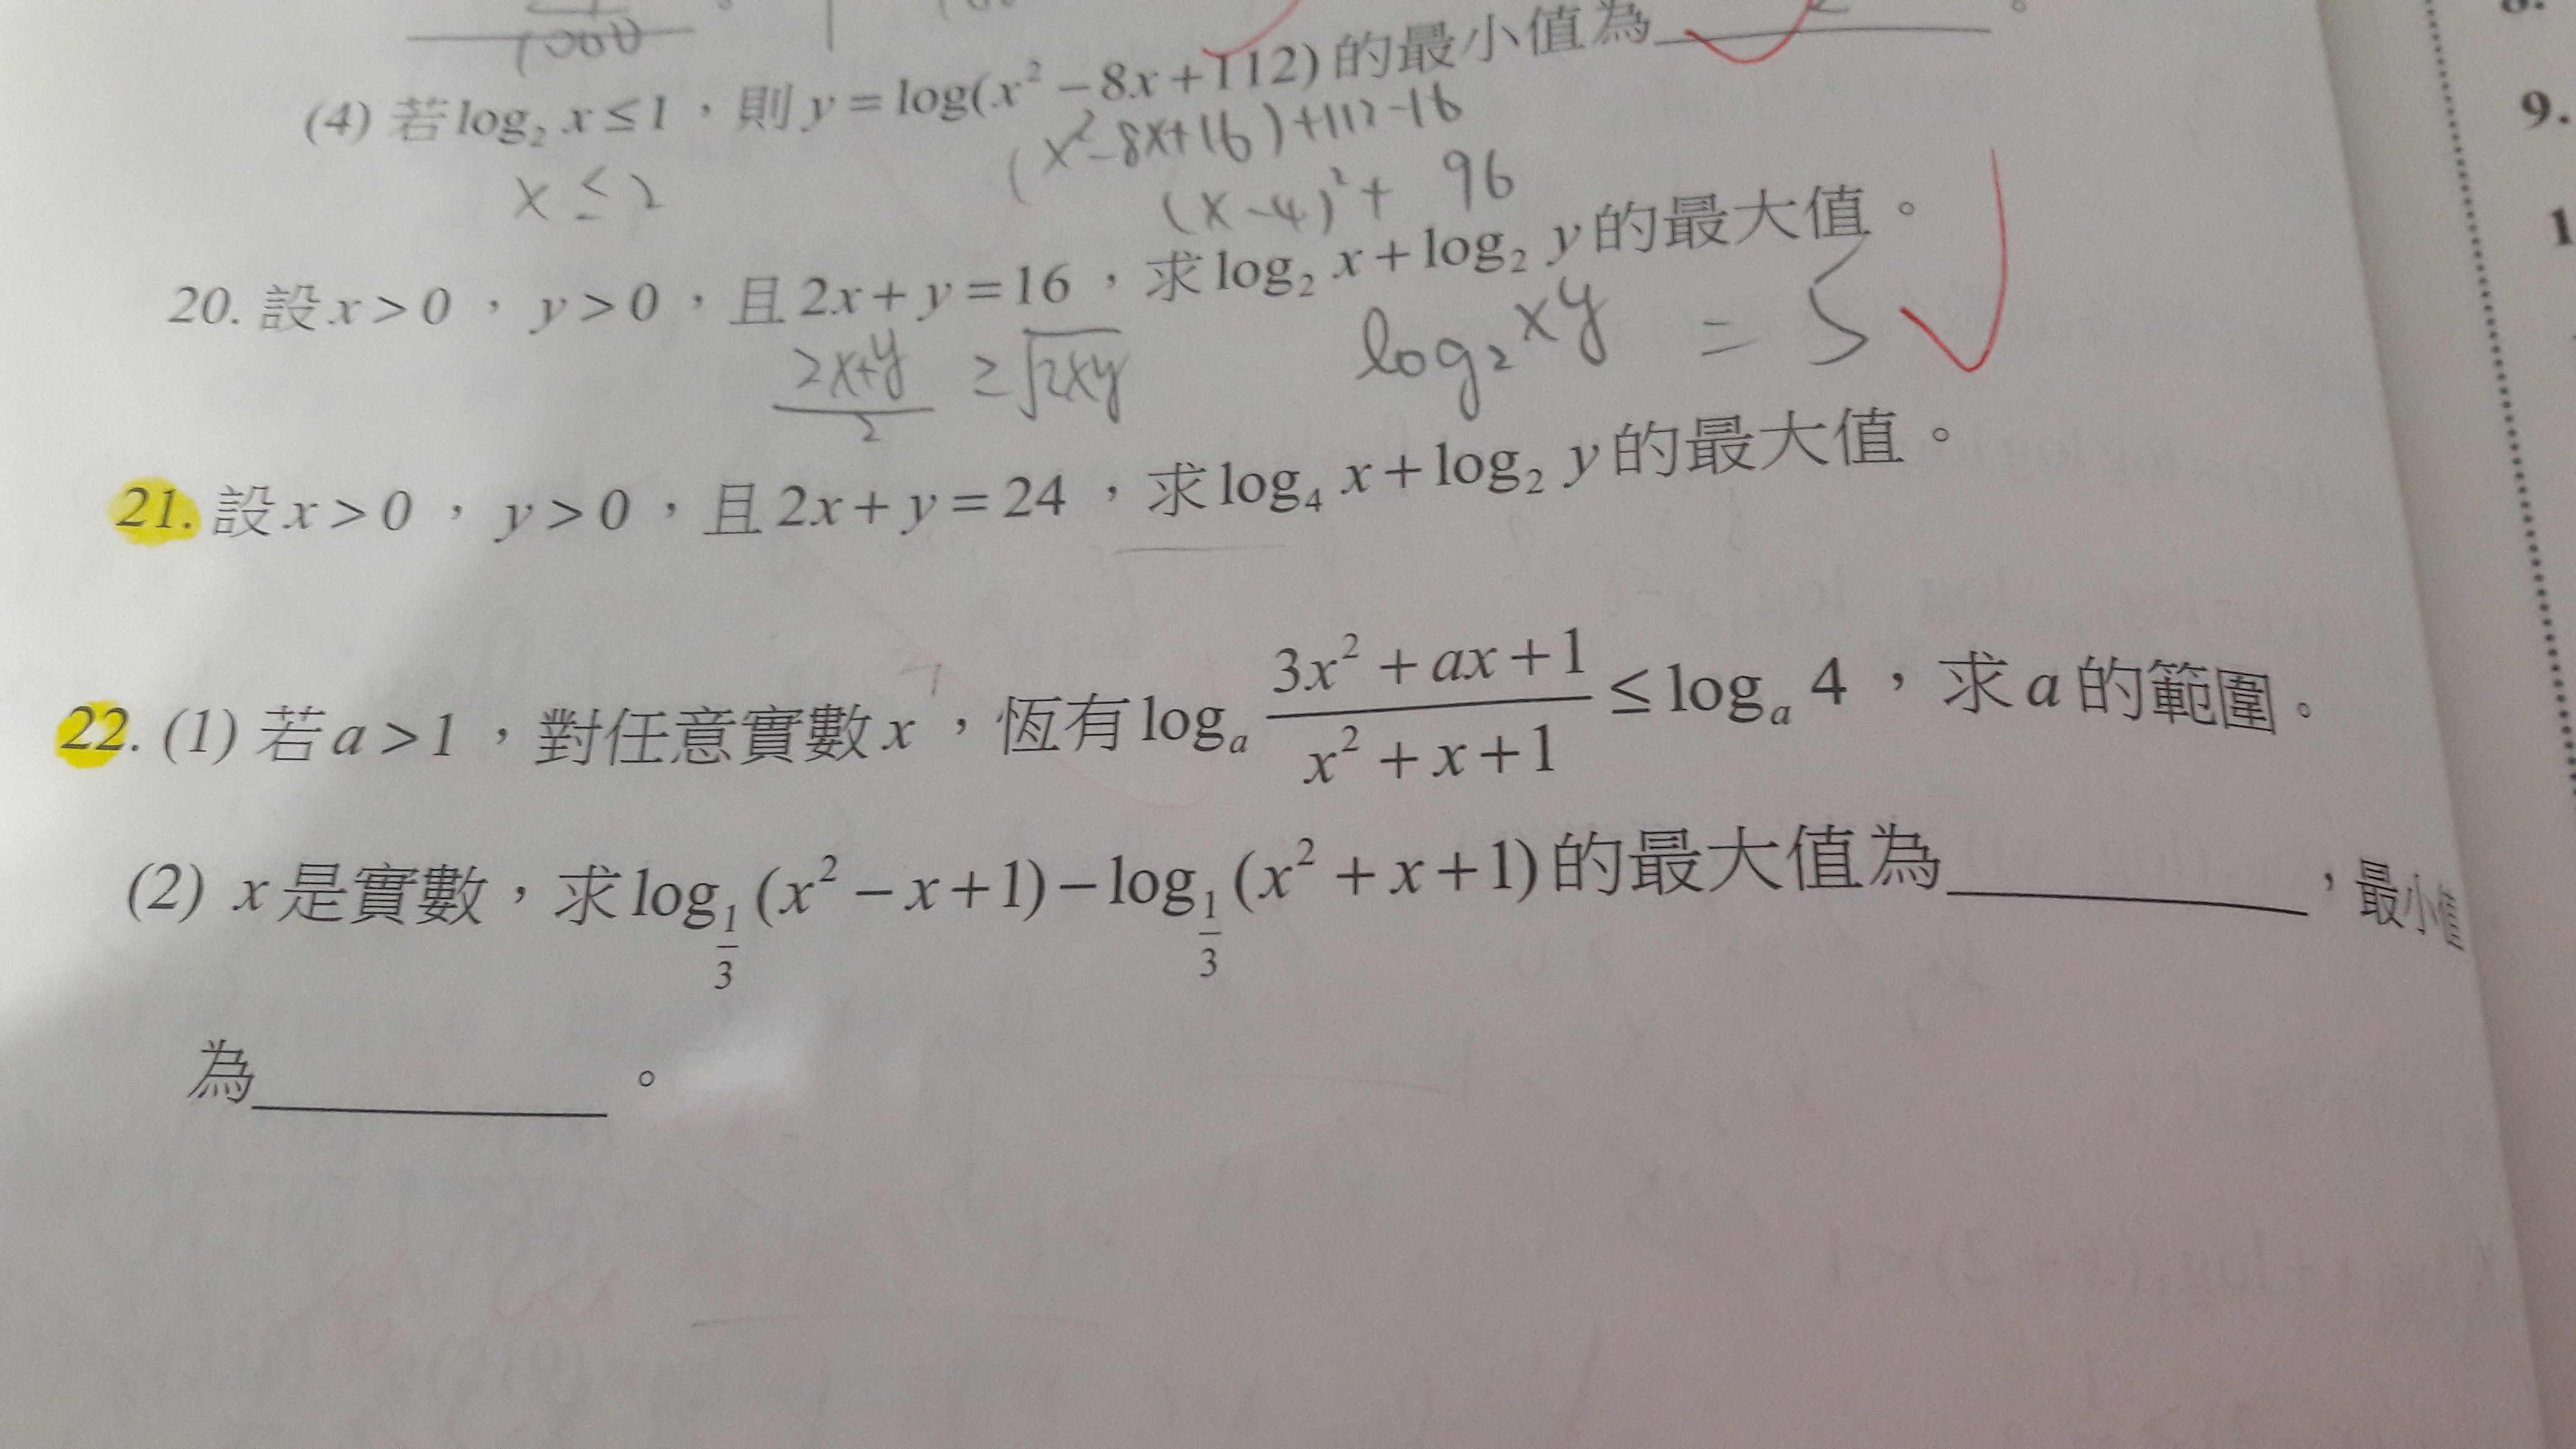 1000
(4) 若 log₂ x ≤ 1，則 y = log(x² − 8x + 112) 的最小值為________。
x ≤ 2
(x² − 8x + 16) + 112 − 16
(x − 4)² + 96
20. 設 x > 0，y > 0，且 2x + y = 16，求 log₂ x + log₂ y 的最大值。
(2x+y)/2 ≥ √(2xy)
log₂ xy = 5
21. 設 x > 0，y > 0，且 2x + y = 24，求 log₄ x + log₂ y 的最大值。
22. (1) 若 a > 1，對任意實數 x，恆有 logₐ (3x² + ax + 1)/(x² + x + 1) ≤ logₐ 4，求 a 的範圍。
(2) x 是實數，求 log_{1/3} (x² − x + 1) − log_{1/3} (x² + x + 1) 的最大值為________，最小值
為________。
9.
1